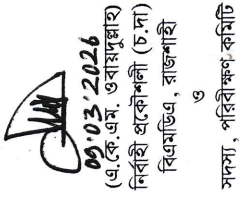 ০৭.০৩.2026
(এ.কে.এম. ওবায়দুল্লাহ)
নির্বাহী প্রকৌশলী (চ.দা)
বিএমডিএ, রাজশাহী
ও
সদস্য, পরিবীক্ষণ কমিটি